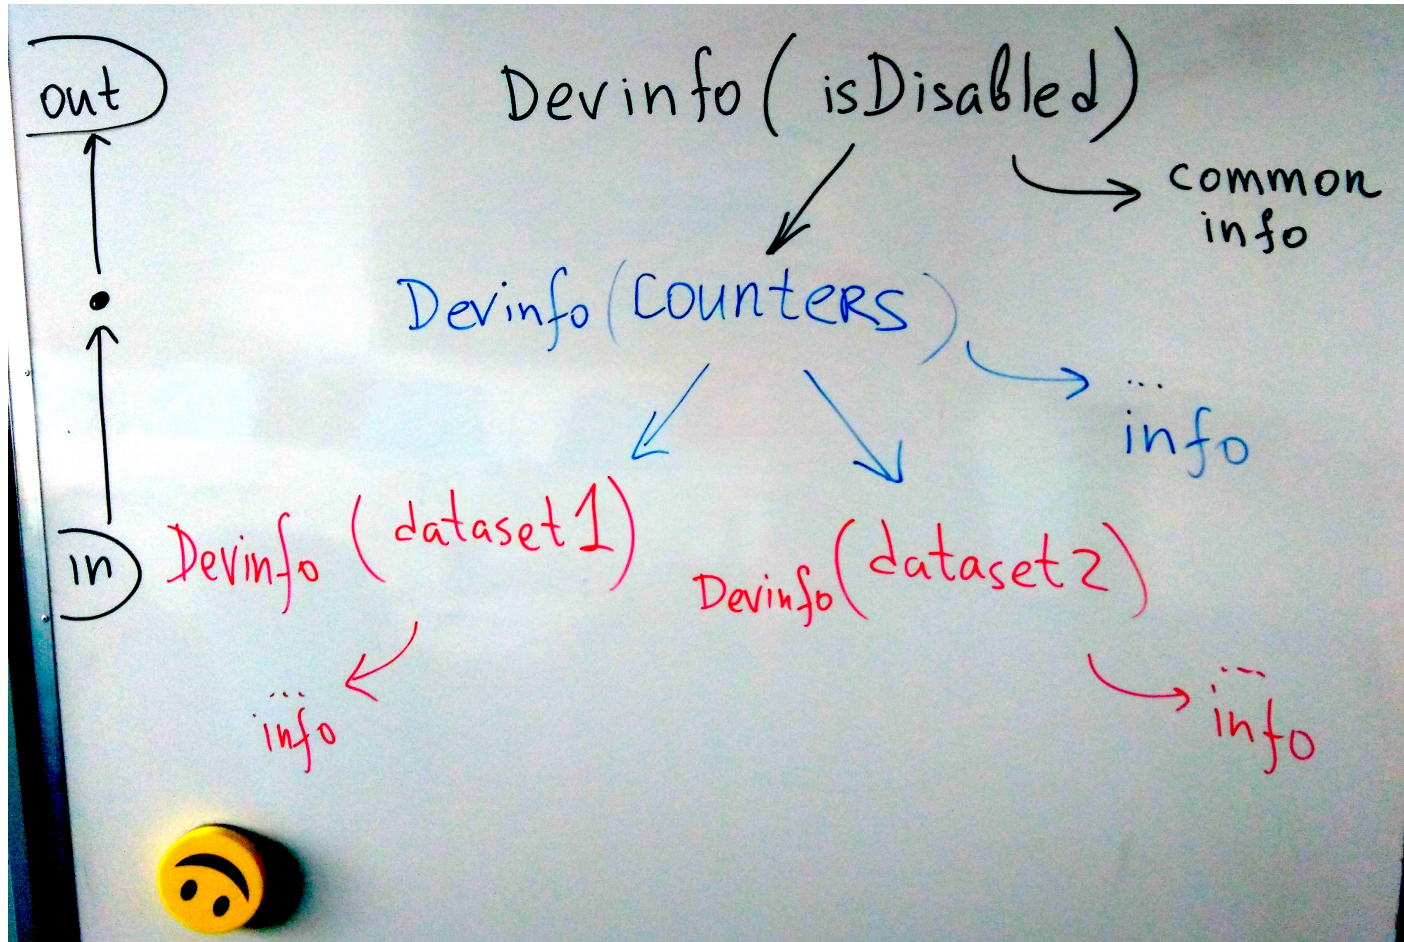 out
Devinfo ( isDisabled )
common
info
Devinfo ( COUNTERS )
...
info
in
Devinfo ( dataset 1 )
Devinfo ( dataset 2 )
...
info
...
info